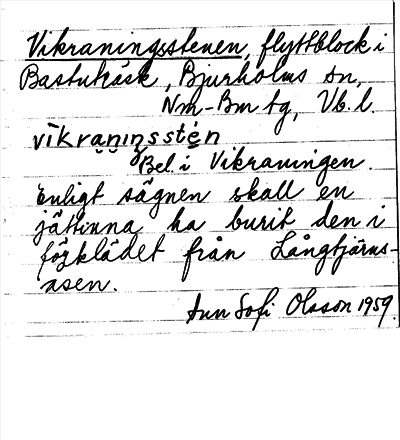 Vikraningsstenen, flyttblock i
Bastuträsk, Bjurholms sn,
Nm-Bm tg, Vb. l.
vìkraṇiŋsstén
Bel. i Vikraningen.
Enligt sägnen skall en
jättinna ha burit den i
förklädet från Långtjärns-
åsen.
Ann Sofi Olsson 1959.